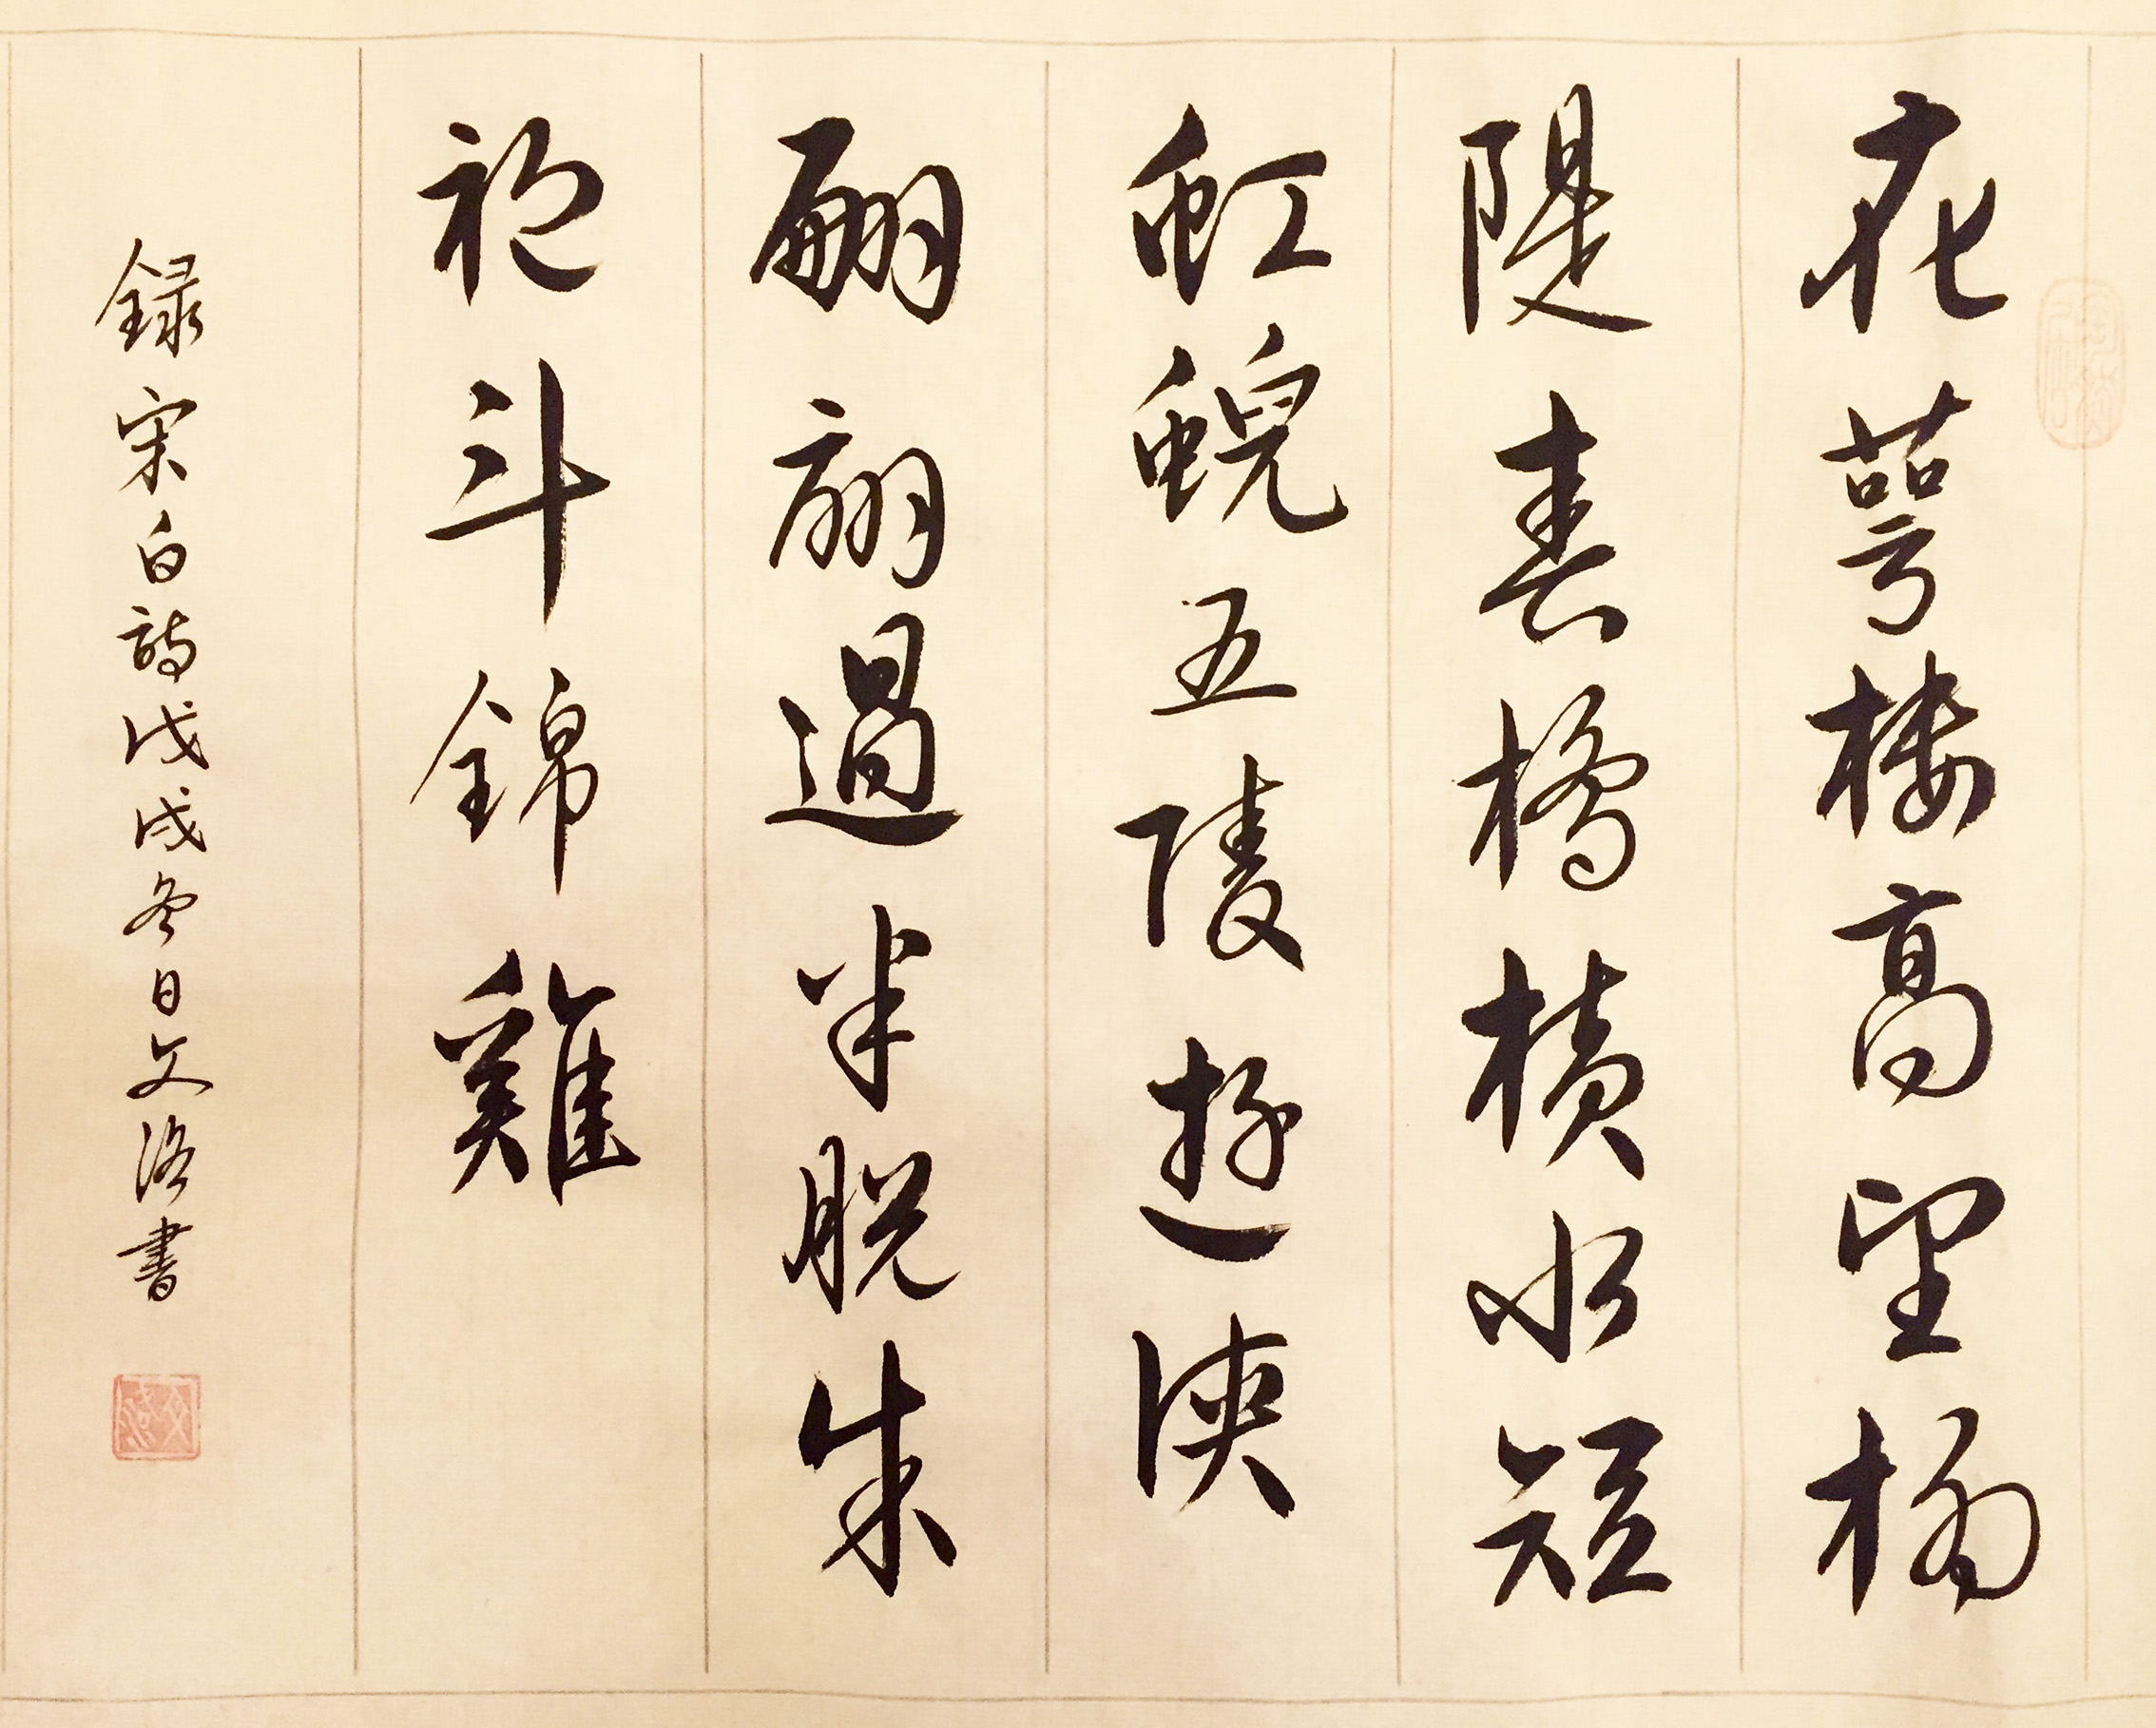 花萼楼高望柳
隄春橋横水短
虹蜺五陵遊俠
翩翩過半脱朱
袍斗錦雞
録宋白詩戊戌冬日文洛書